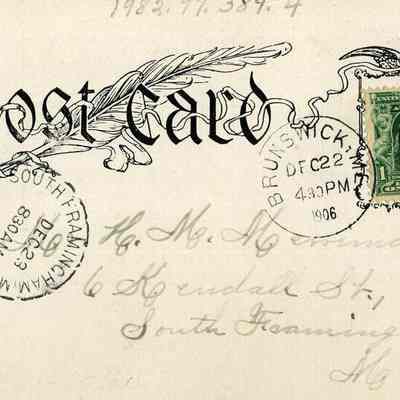 1982.77.384.4
ost Card
BRUNSWICK, ME.
DEC 22
4 30 PM
1906
SOUTH FRAMINGHAM, M
DEC 23
8 30 AM
H. M.
6 Kendall St.,
South Framing
M